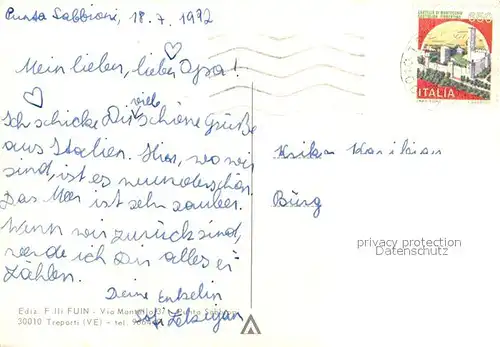 Punta Sabbioni, 18.7.1992
CASTELLO DI MONTECCHIO
CASTIGLION FIORENTINO
650
ITALIA
Mein lieber, lieber Opa!
Ich schicke Dir viele schöne Grüße
aus Italien. Hier, wo wir
sind, ist es wunderschön.
Das Meer ist sehr sauber.
Wenn wir zurück sind,
werde ich Dir alles er-
zählen.
Deine Enkelin
Bürg
privacy protection
Datenschutz
Ediz. F.lli FUIN - Via Montello 3/ - Punta Sabbioni
30010 Treporti (VE) - tel.